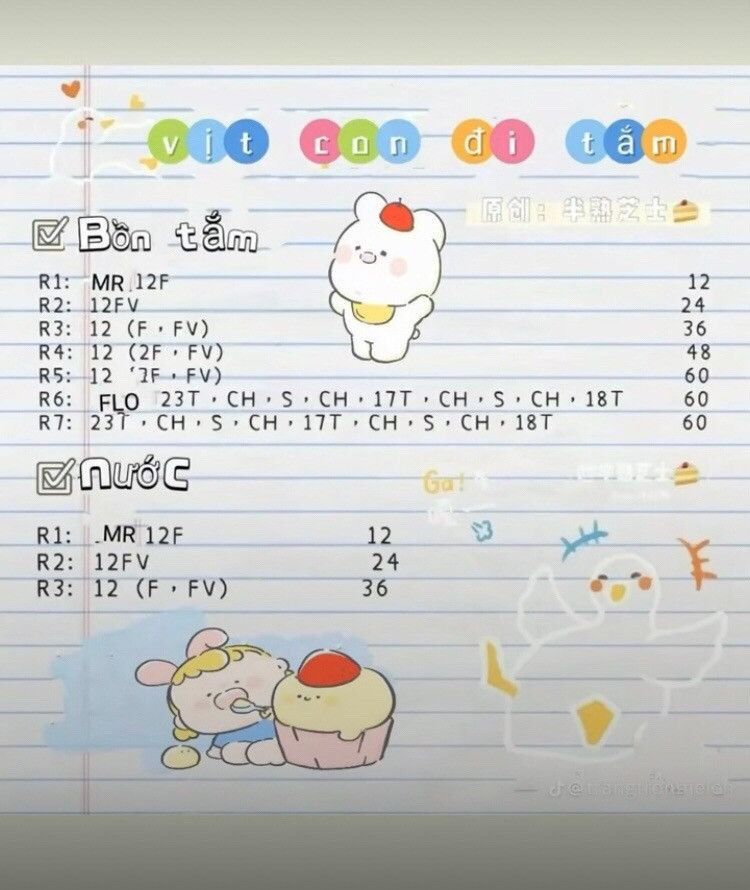 vịt con đi tắm
原创：半熟芝士
Bồn tắm
R1: MR 12F 12
R2: 12FV 24
R3: 12 (F，FV) 36
R4: 12 (2F，FV) 48
R5: 12 FV) 60
R6: FLO 23T，CH，S，CH，17T，CH，S，CH，18T 60
R7: 23T，CH，S，CH，17T，CH，S，CH，18T 60
Nước
Ga!
半熟芝士
R1: MR 12F 12
R2: 12FV 24
R3: 12 (F，FV) 36